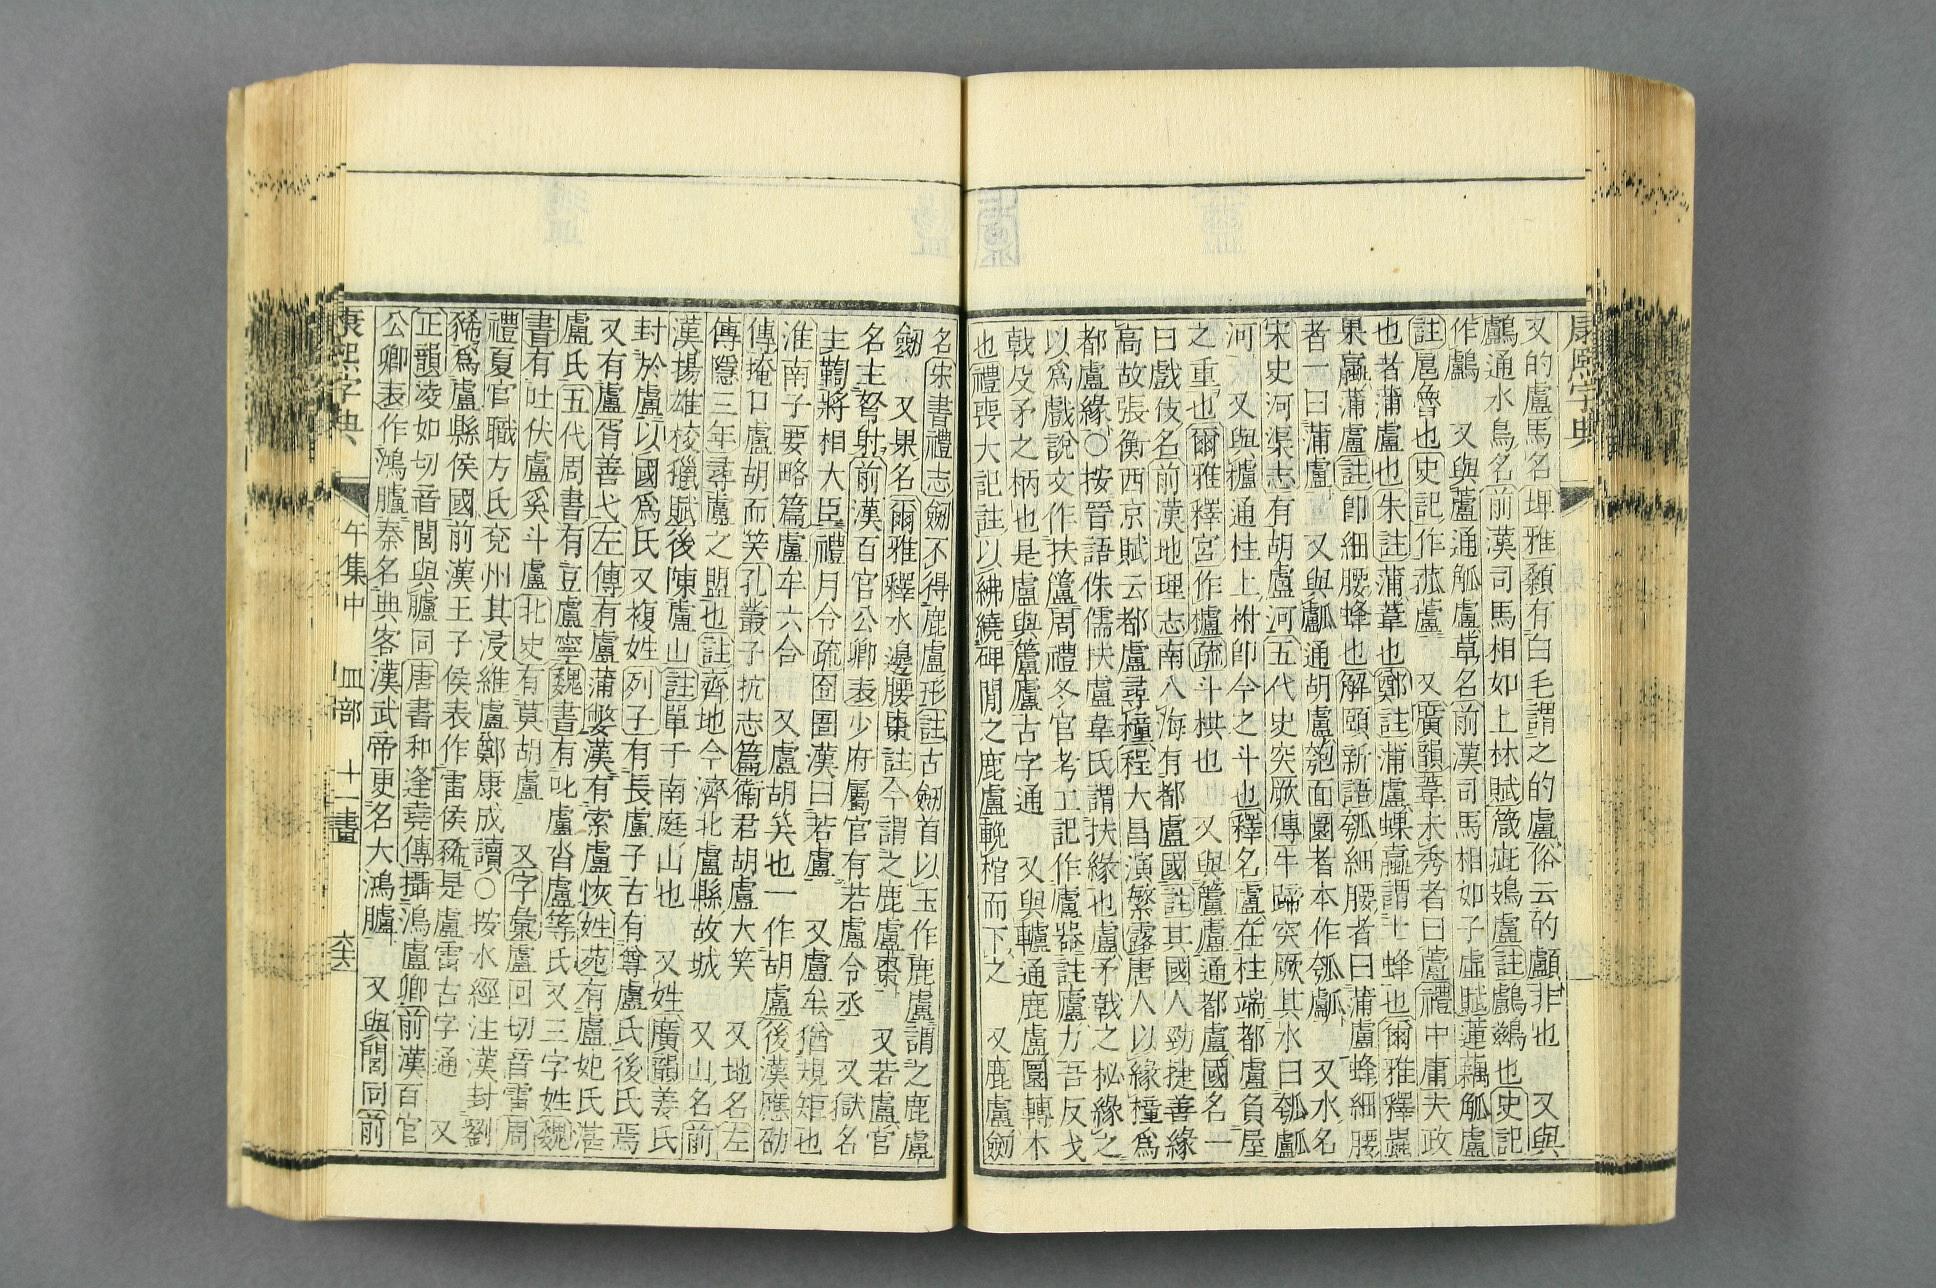 康熙字典
又的盧馬名埤雅顙有白毛謂之的盧俗云的顱非也　又與
鸕通水鳥名前漢司馬相如上林賦箴疵鵁盧註鸕鷀也史記
作鸕　又與蘆通觚盧草名前漢司馬相如子虛賦蓮藕觚盧
註扈魯也史記作菰蘆　又廣韻葦未秀者曰蘆禮中庸夫政
也者蒲盧也朱註蒲葦也鄭註蒲盧蜾蠃謂土蜂也爾雅釋蟲
果蠃蒲盧註卽細腰蜂也解頤新語瓠細腰者曰蒲盧蜂細腰
者一曰蒲盧　又與瓠通胡盧匏面圜者本作瓠㼋　又水名
宋史河渠志有胡盧河五代史突厥傳牛蹄突厥其水曰瓠㼋
河　又與櫨通柱上柎卽今之斗也釋名盧在柱端都盧負屋
之重也爾雅釋宮作櫨疏斗栱也　又與籚盧通都盧國名一
曰戲伎名前漢地理志南入海有都盧國註其國人勁捷善緣
高故張衡西京賦云都盧尋橦程大昌演繁露唐人以緣橦爲
都盧緣○按晉語侏儒扶盧韋氏謂扶緣也盧矛戟之柲緣之
以爲戲說文作扶籚周禮冬官考工記作廬器註廬力吾反戈
戟及矛之柄也是盧與籚廬古字通　又與轤通鹿盧圜轉木
也禮喪大記註以紼繞碑閒之鹿盧輓棺而下之　又鹿盧劒
名宋書禮志劒不得鹿盧形註古劒首以玉作鹿盧謂之鹿盧
劒　又果名爾雅釋水邊腰棗註今謂之鹿盧棗　又若盧官
名主弩射前漢百官公卿表少府屬官有若盧令丞　又獄名
主鞫將相大臣禮月令疏囹圄漢曰若盧　又盧牟猶規矩也
淮南子要略篇盧牟六合　又盧胡笑也一作胡盧後漢應劭
傳掩口盧胡而笑孔叢子抗志篇衞君胡盧大笑　又地名左
傳隱三年尋盧之盟也註齊地今濟北盧縣故城　又山名前
漢揚雄校獵賦後陳盧山註單于南庭山也　又姓廣韻姜氏
封於盧以國爲氏又複姓列子有長盧子古有尊盧氏後氏焉
又有盧胥善弋左傳有盧蒲嫳漢有索盧恢姓苑有盧妃氏湛
盧氏五代周書有豆盧寧魏書有叱盧沓盧等氏又三字姓魏
書有吐伏盧奚斗盧北史有莫胡盧　又字彙盧回切音雷周
禮夏官職方氏兗州其浸維盧鄭康成讀○按水經注漢封劉
豨爲盧縣侯國前漢王子侯表作雷侯豨是盧雷古字通　又
正韻淩如切音閭與臚同唐書和逢堯傳攝鴻盧卿前漢百官
公卿表作鴻臚秦名典客漢武帝更名大鴻臚　又與閭同前
康熙字典　午集中　皿部　十一畫　六六